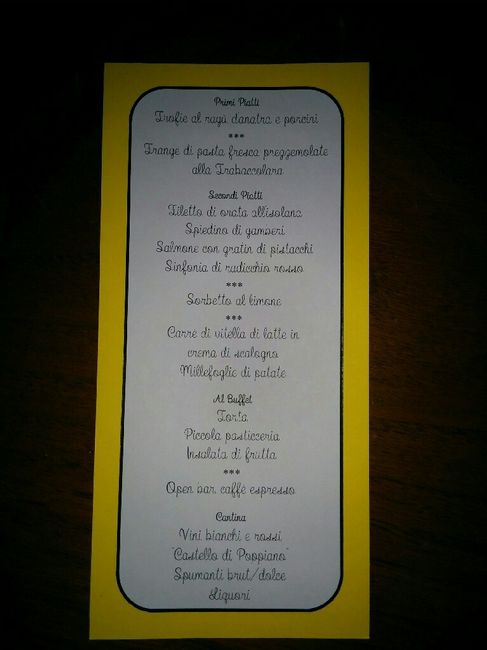 Primi Piatti
Trofie al ragù danatra e porcini
***
Frange di pasta fresca prezzemolate
alla Trabaccolara
Secondi Piatti
Filetto di orata all'isolana
Spiedino di gamperi
Salmone con gratin di pistacchi
Sinfonia di rudicchio rosso
***
Sorbetto al limone
***
Carrè di vitella di latte in
crema di scalogno
Millefoglie di patate
Al Buffet
Torta
Piccola pasticceria
Insalata di frutta
***
Open bar caffè espresso
Cantina
Vini bianchi e rossi
"Castello di Poppiano"
Spumanti brut/dolce
Liquori